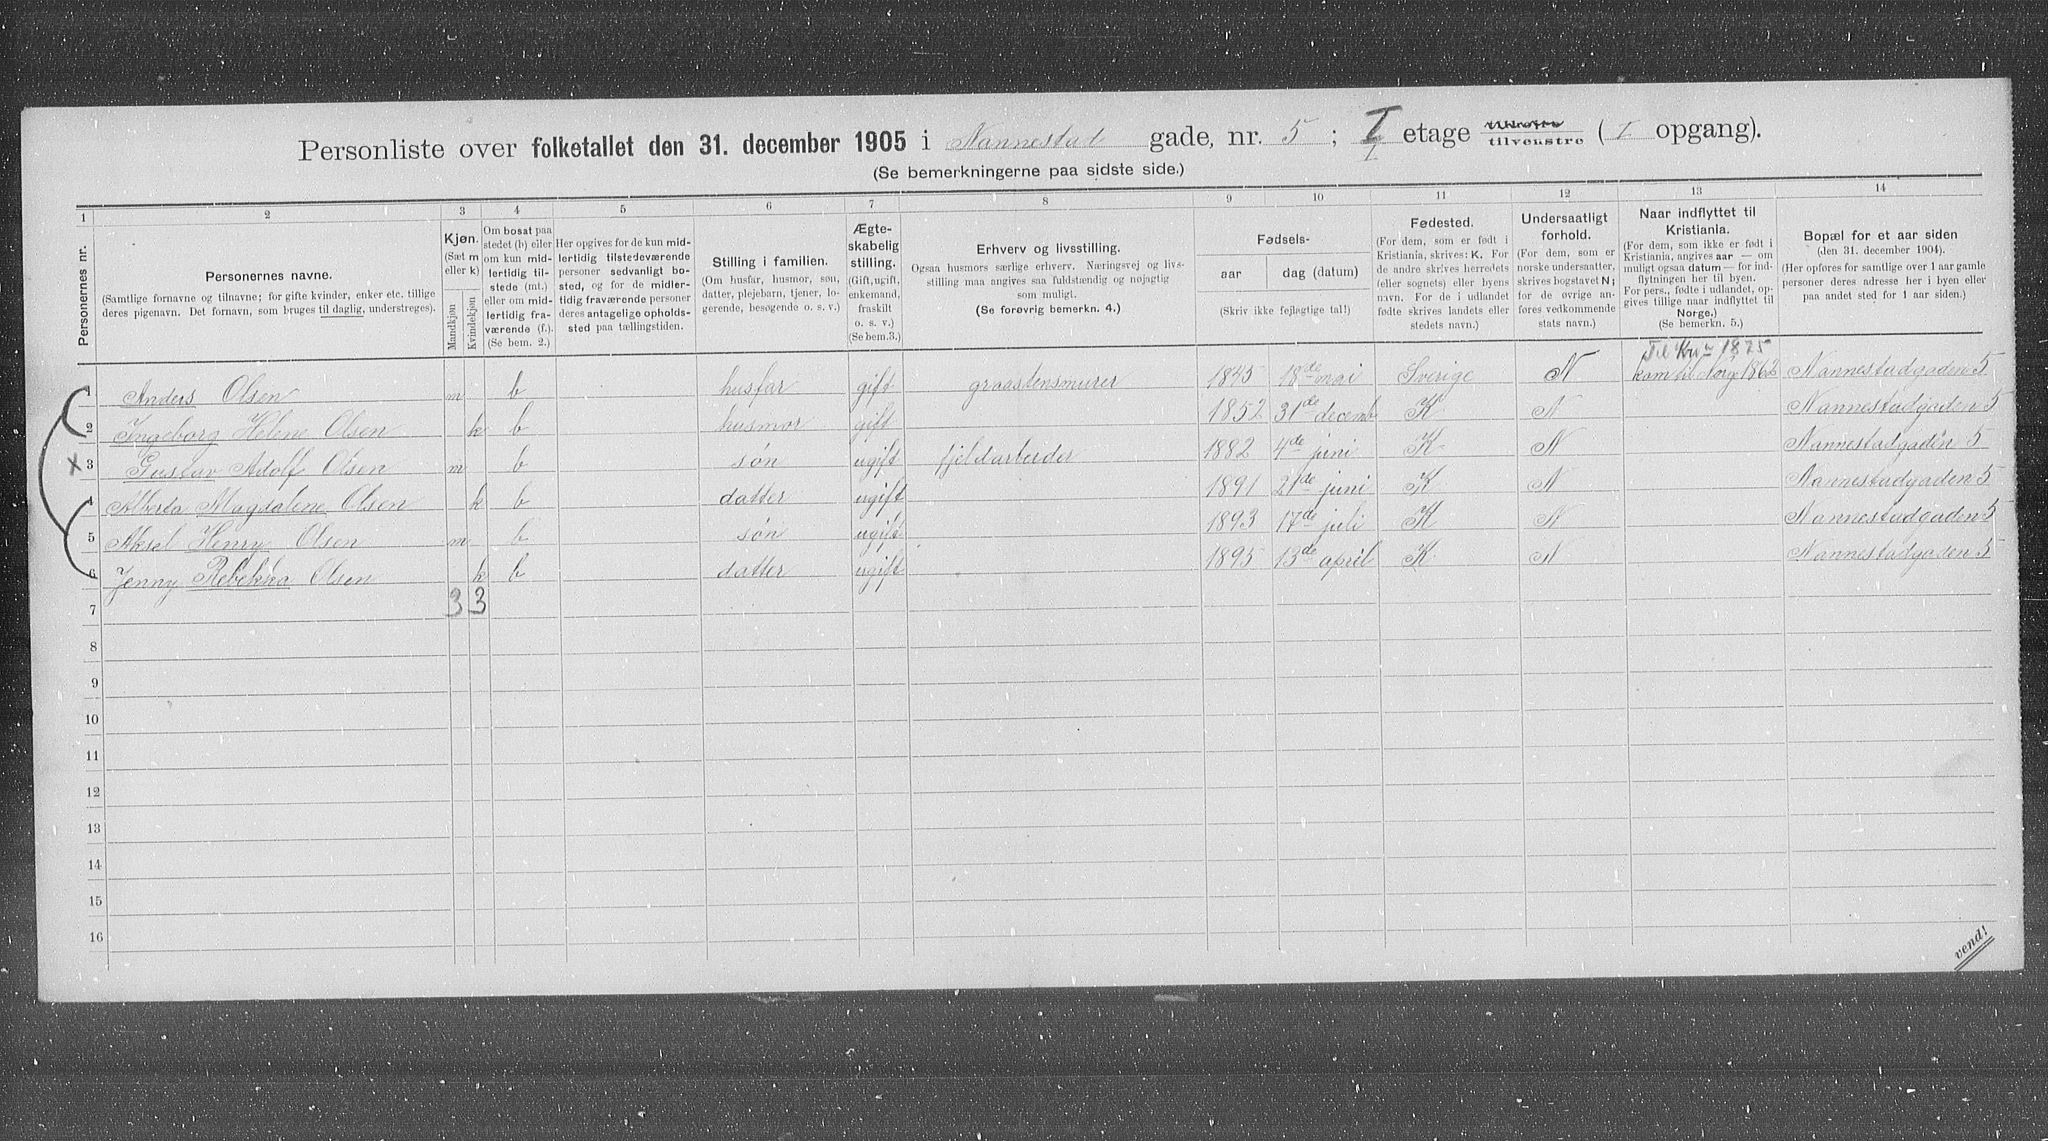 Personliste over folketallet den 31. december 1905 i Nannestad gade, nr. 5; I etage tilhøire tilvenstre (I opgang).
(Se bemerkningerne paa sidste side.)
1 2 3 4 5 6 7 8 9 10 11 12 13 14
Personernes nr.
Personernes navne.
(Samtlige fornavne og tilnavne; for gifte kvinder, enker etc. tillige
deres pigenavn. Det fornavn, som bruges til daglig, understreges).
Kjøn.
(Sæt m
eller k)
Mandkjøn
Kvindekjøn
Om bosat paa
stedet (b) eller
om kun mid-
lertidig til-
stede (mt.)
eller om mid-
lertidig fra-
værende (f.).
(Se bem. 2.)
Her opgives for de kun mid-
lertidig tilstedeværende
personer sedvanligt bo-
sted, og for de midler-
tidig fraværende personer
deres antagelige opholds-
sted paa tællingstiden.
Stilling i familien.
(Om husfar, husmor, søn,
datter, plejebarn, tjener, lo-
gerende, besøgende o. s. v.)
Ægte-
skabelig
stilling.
(Gift, ugift,
enkemand,
fraskilt
o. s. v.)
(Se bem.3.)
Erhverv og livsstilling.
Ogsaa husmors særlige erhverv. Næringsvej og livs-
stilling maa angives saa fuldstændig og nøjagtig
som muligt.
(Se forøvrig bemerkn. 4.)
Fødsels-
aar dag (datum)
(Skriv ikke fejlagtige tal!)
Fødested.
(For dem, som er født i
Kristiania, skrives: K. For
de andre skrives herredets
(eller sognets) eller byens
navn. For de i udlandet
fødte skrives landets eller
stedets navn.)
Undersaatligt
forhold.
(For dem, som er
norske undersaatter,
skrives bogstavet N;
for de øvrige an-
føres vedkommende
stats navn.)
Naar indflyttet til
Kristiania.
(For dem, som ikke er født i
Kristiania, angives aar — om
muligt ogsaa datum — for ind-
flytningen her til byen.
For pers., fødte i udlandet, op-
gives tillige naar indflyttet til
Norge.)
(Se bemerkn. 5.)
Bopæl for et aar siden
(den 31. december 1904).
(Her opføres for samtlige over 1 aar gamle
personer deres adresse her i byen eller
paa andet sted for 1 aar siden.)
Til Kra 1875
1 Anders Olsen m b husfar gift graastensmurer 1845 18de mai Sverige N kom til Norge 1862 Nannestadgaden 5
2 Ingeborg Helene Olsen k b husmor gift 1852 31de decemb K N Nannestadgaden 5
x 3 Gustav Adolf Olsen m b søn ugift fjeldarbeider 1882 4de juni K N Nannestadgaden 5
4 Alberta Magdalene Olsen k b datter ugift 1891 21de juni K N Nannestadgaden 5
5 Aksel Henry Olsen m b søn ugift 1893 17de juli K N Nannestadgaden 5
6 Jenny Rebekka Olsen k b datter ugift 1895 13de april K N Nannestadgaden 5
7 3 3
8
9
10
11
12
13
14
15
16
vend!